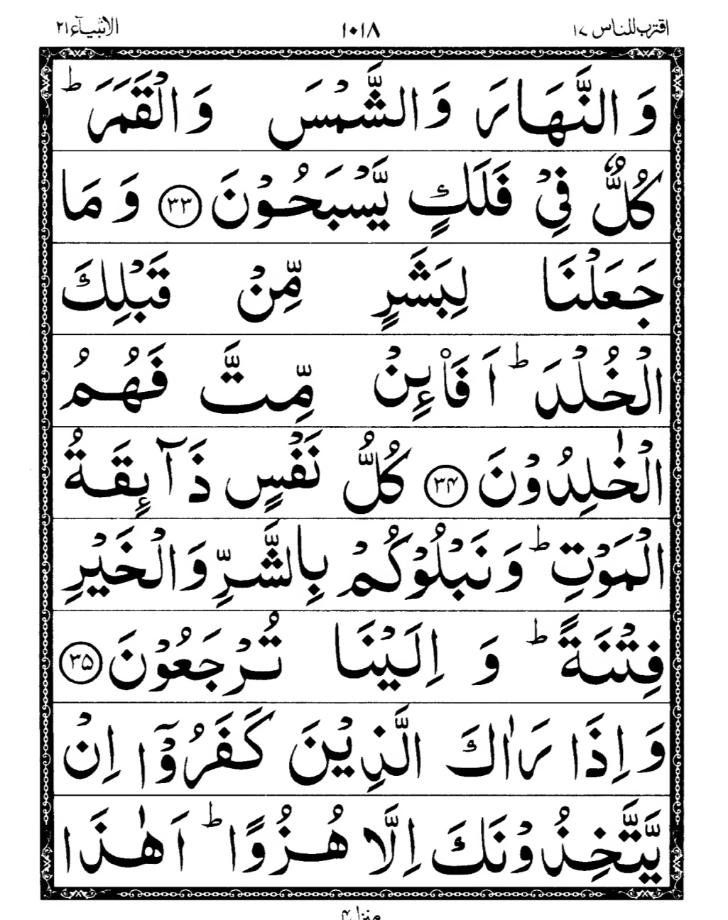 اقترب للناس ۱۷ ۱۰۱۸ الانبیآء ۲۱
وَ النَّهَارَ وَ الشَّمْسَ وَ الْقَمَرَ ؕ
كُلٌّ فِیْ فَلَكٍ یَّسْبَحُوْنَ ﴿۳۳﴾ وَ مَا
جَعَلْنَا لِبَشَرٍ مِّنْ قَبْلِكَ
الْخُلْدَ ؕ اَفَا۠ئِنْ مِّتَّ فَهُمُ
الْخٰلِدُوْنَ ﴿۳۴﴾ كُلُّ نَفْسٍ ذَآىِٕقَةُ
الْمَوْتِ ؕ وَ نَبْلُوْكُمْ بِالشَّرِّ وَ الْخَیْرِ
فِتْنَةً ؕ وَ اِلَیْنَا تُرْجَعُوْنَ ﴿۳۵﴾
وَ اِذَا رَاٰكَ الَّذِیْنَ كَفَرُوْۤا اِنْ
یَّتَّخِذُوْنَكَ اِلَّا هُزُوًا ؕ اَهٰذَا
منزل ۴